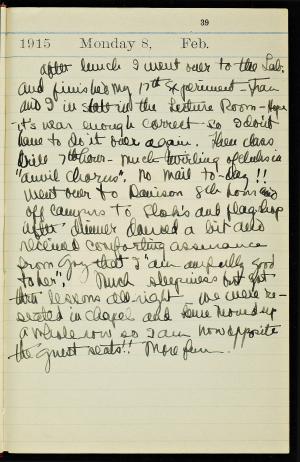 39
1915 Monday 8, Feb.
after lunch I went over to the Lab.
and finished my 17th experiment - Fran
and I in state in the Lecture Room - Hope
it's near enough correct so I don't
have to do it over again. Then class
Drill 7th hour - much twirling of clubs in
"anvil chorus". No mail to-day!!
Went over to Davison 8th hour and
off campus to and flag shop
after dinner danced a bit also
received comforting assurance
from Guy that I "am awfully good
to her". Much sleepiness but got
thru lessons all right. We were re-
seated in chapel and some moved up
a whole row so I am now opposite
the guest seats!! More fun.